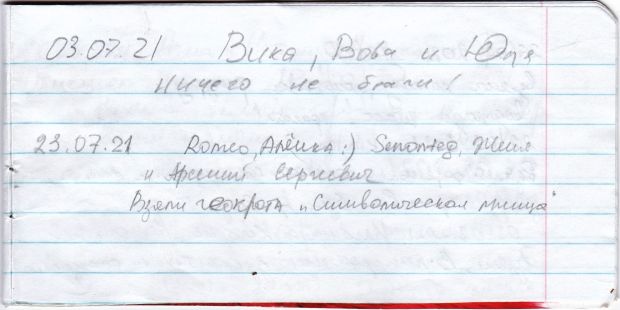 03.07.21 Вика, Вова и Юля
ничего не брали!
23.07.21 Romeo, Алёнка :) Senmonteg, Женя
и Арсений Сергиевич
Взяли геокрота и "Символическая птица"